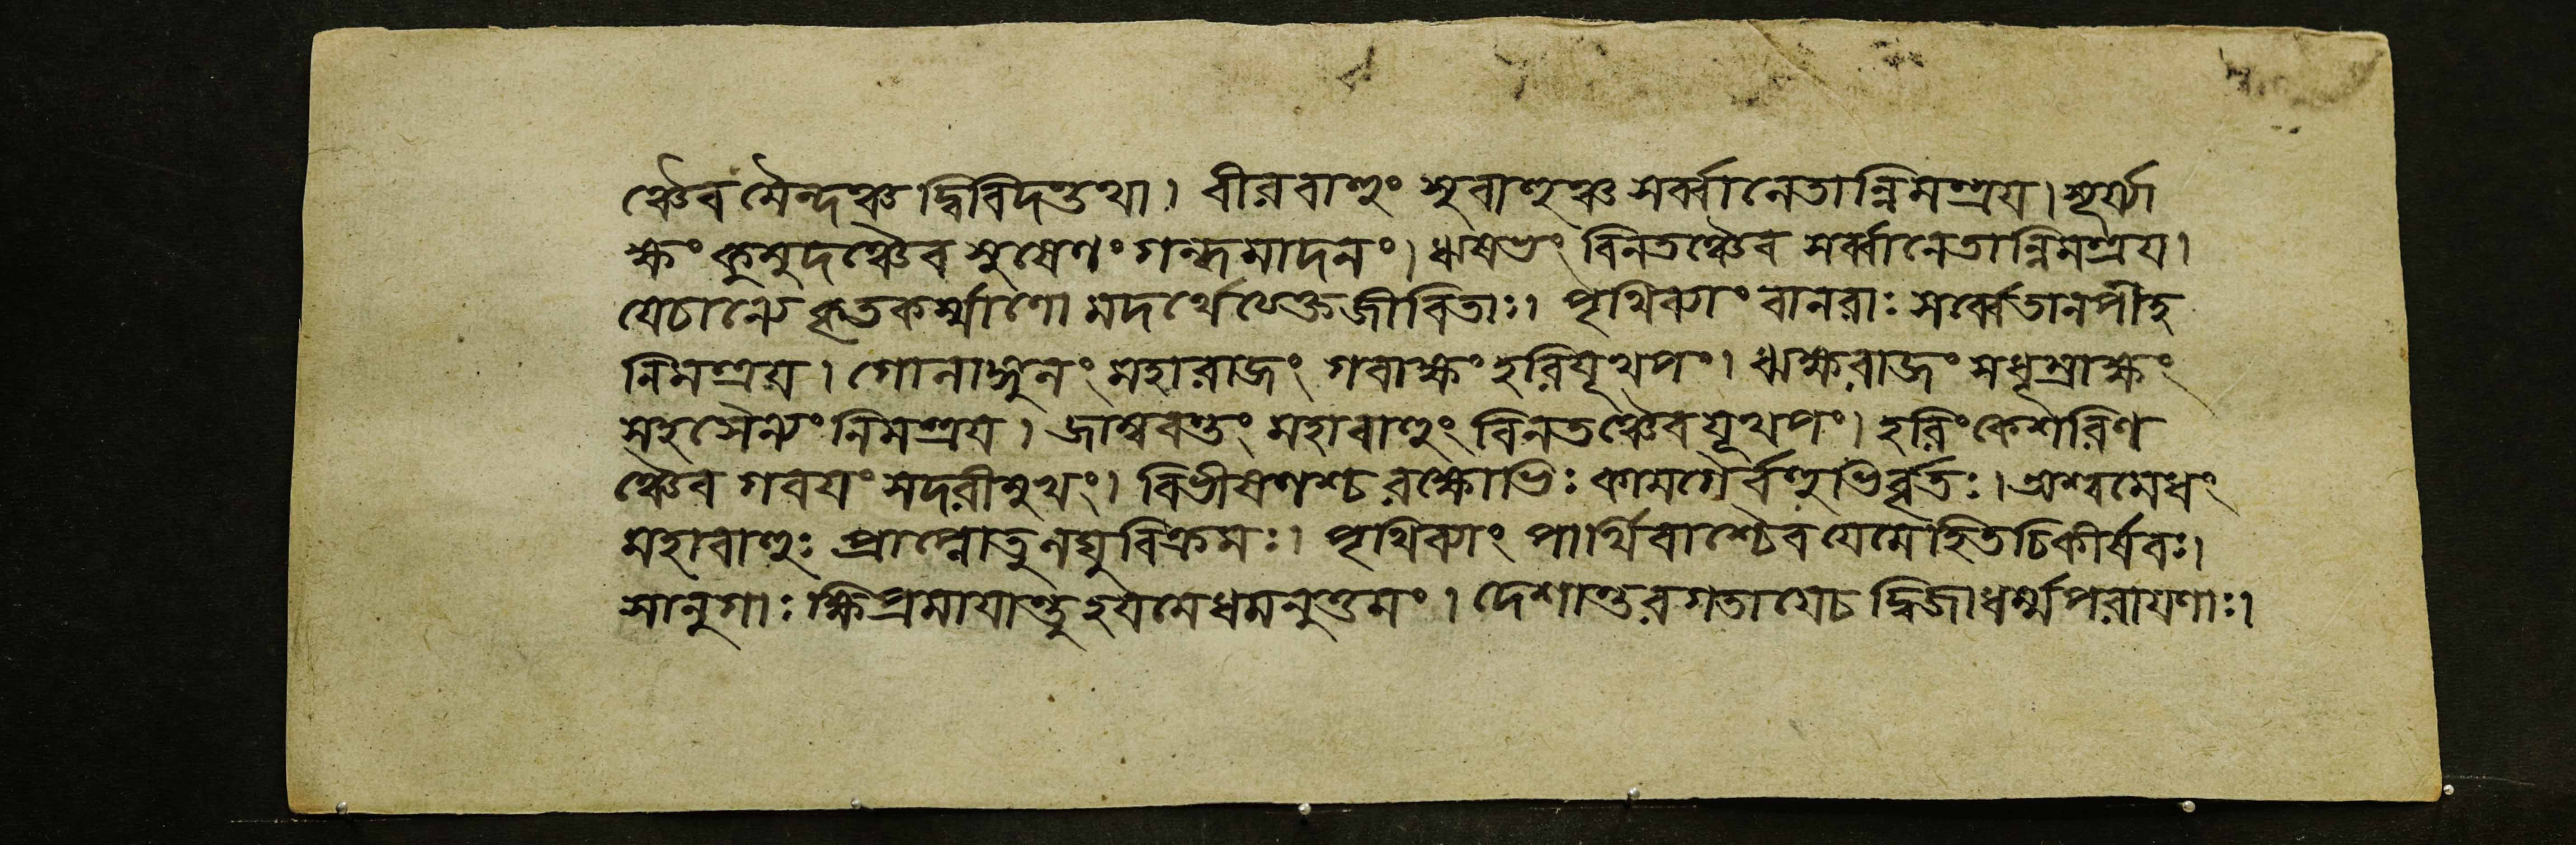 ঞ্চৈব মৈন্দঞ্চ দ্বিবিদন্তথা। বীরবাহুং সুবাহুঞ্চ সর্ব্বানেতান্নিমন্ত্রয়। সূর্য্যা
ক্ষং কুমুদঞ্চৈব সুষেণং গন্ধমাদনং। ঋষভং বিনতঞ্চৈব সর্ব্বানেতান্নিমন্ত্রয়।
যেচান্যে কৃতকর্ম্মাণো মদর্থে ত্যক্তজীবিতাঃ। পৃথিব্যাং বানরাঃ সর্ব্বেতানপীহ
নিমন্ত্রয়। গোলাঙ্গুলং মহারাজং গবাক্ষং হরিযূথপং। ঋক্ষরাজং সধূম্রাক্ষং
সহসৈন্যং নিমন্ত্রয়। জাম্ববন্তং মহাবাহুং বিনতঞ্চৈবযূথপং। হরিংকেশরিণ
ঞ্চৈব গবয়ং সদরীমুখং। বিভীষণশ্চ রক্ষোভিঃ কামগৈর্বহুভির্বৃতঃ। অশ্বমেধং
মহাবাহুঃ প্রাপ্নোতুলঘুবিক্রমঃ। পৃথিব্যাং পার্থিবাশ্চৈব যেমেহিতচিকীর্ষবঃ।
সানুগাঃ ক্ষিপ্রমাযান্তু হয়মেধমনুত্তমং। দেশান্তরগতা যেচ দ্বিজাধর্ম্মপরায়ণাঃ।